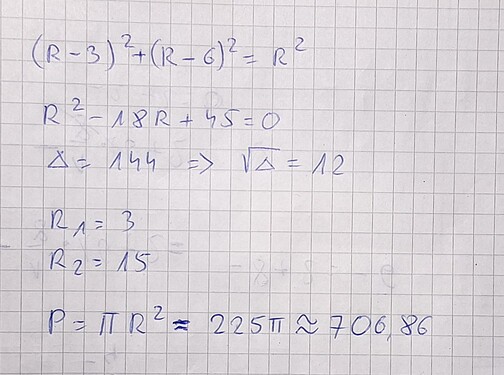 (R-3)²+(R-6)²=R²
R²-18R+45=0
Δ=144 => √Δ=12
R₁=3
R₂=15
P=πR²=225π≈706,86